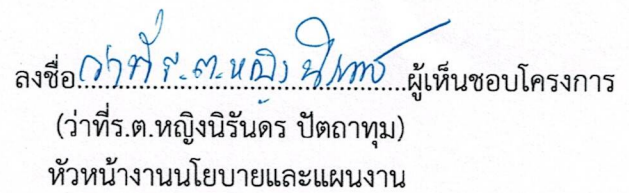 ลงชื่อ ว่าที่ ร.ต.หญิง นิรันดร ผู้เห็นชอบโครงการ
(ว่าที่ร.ต.หญิงนิรันดร ปัตถาทุม)
หัวหน้างานนโยบายและแผนงาน